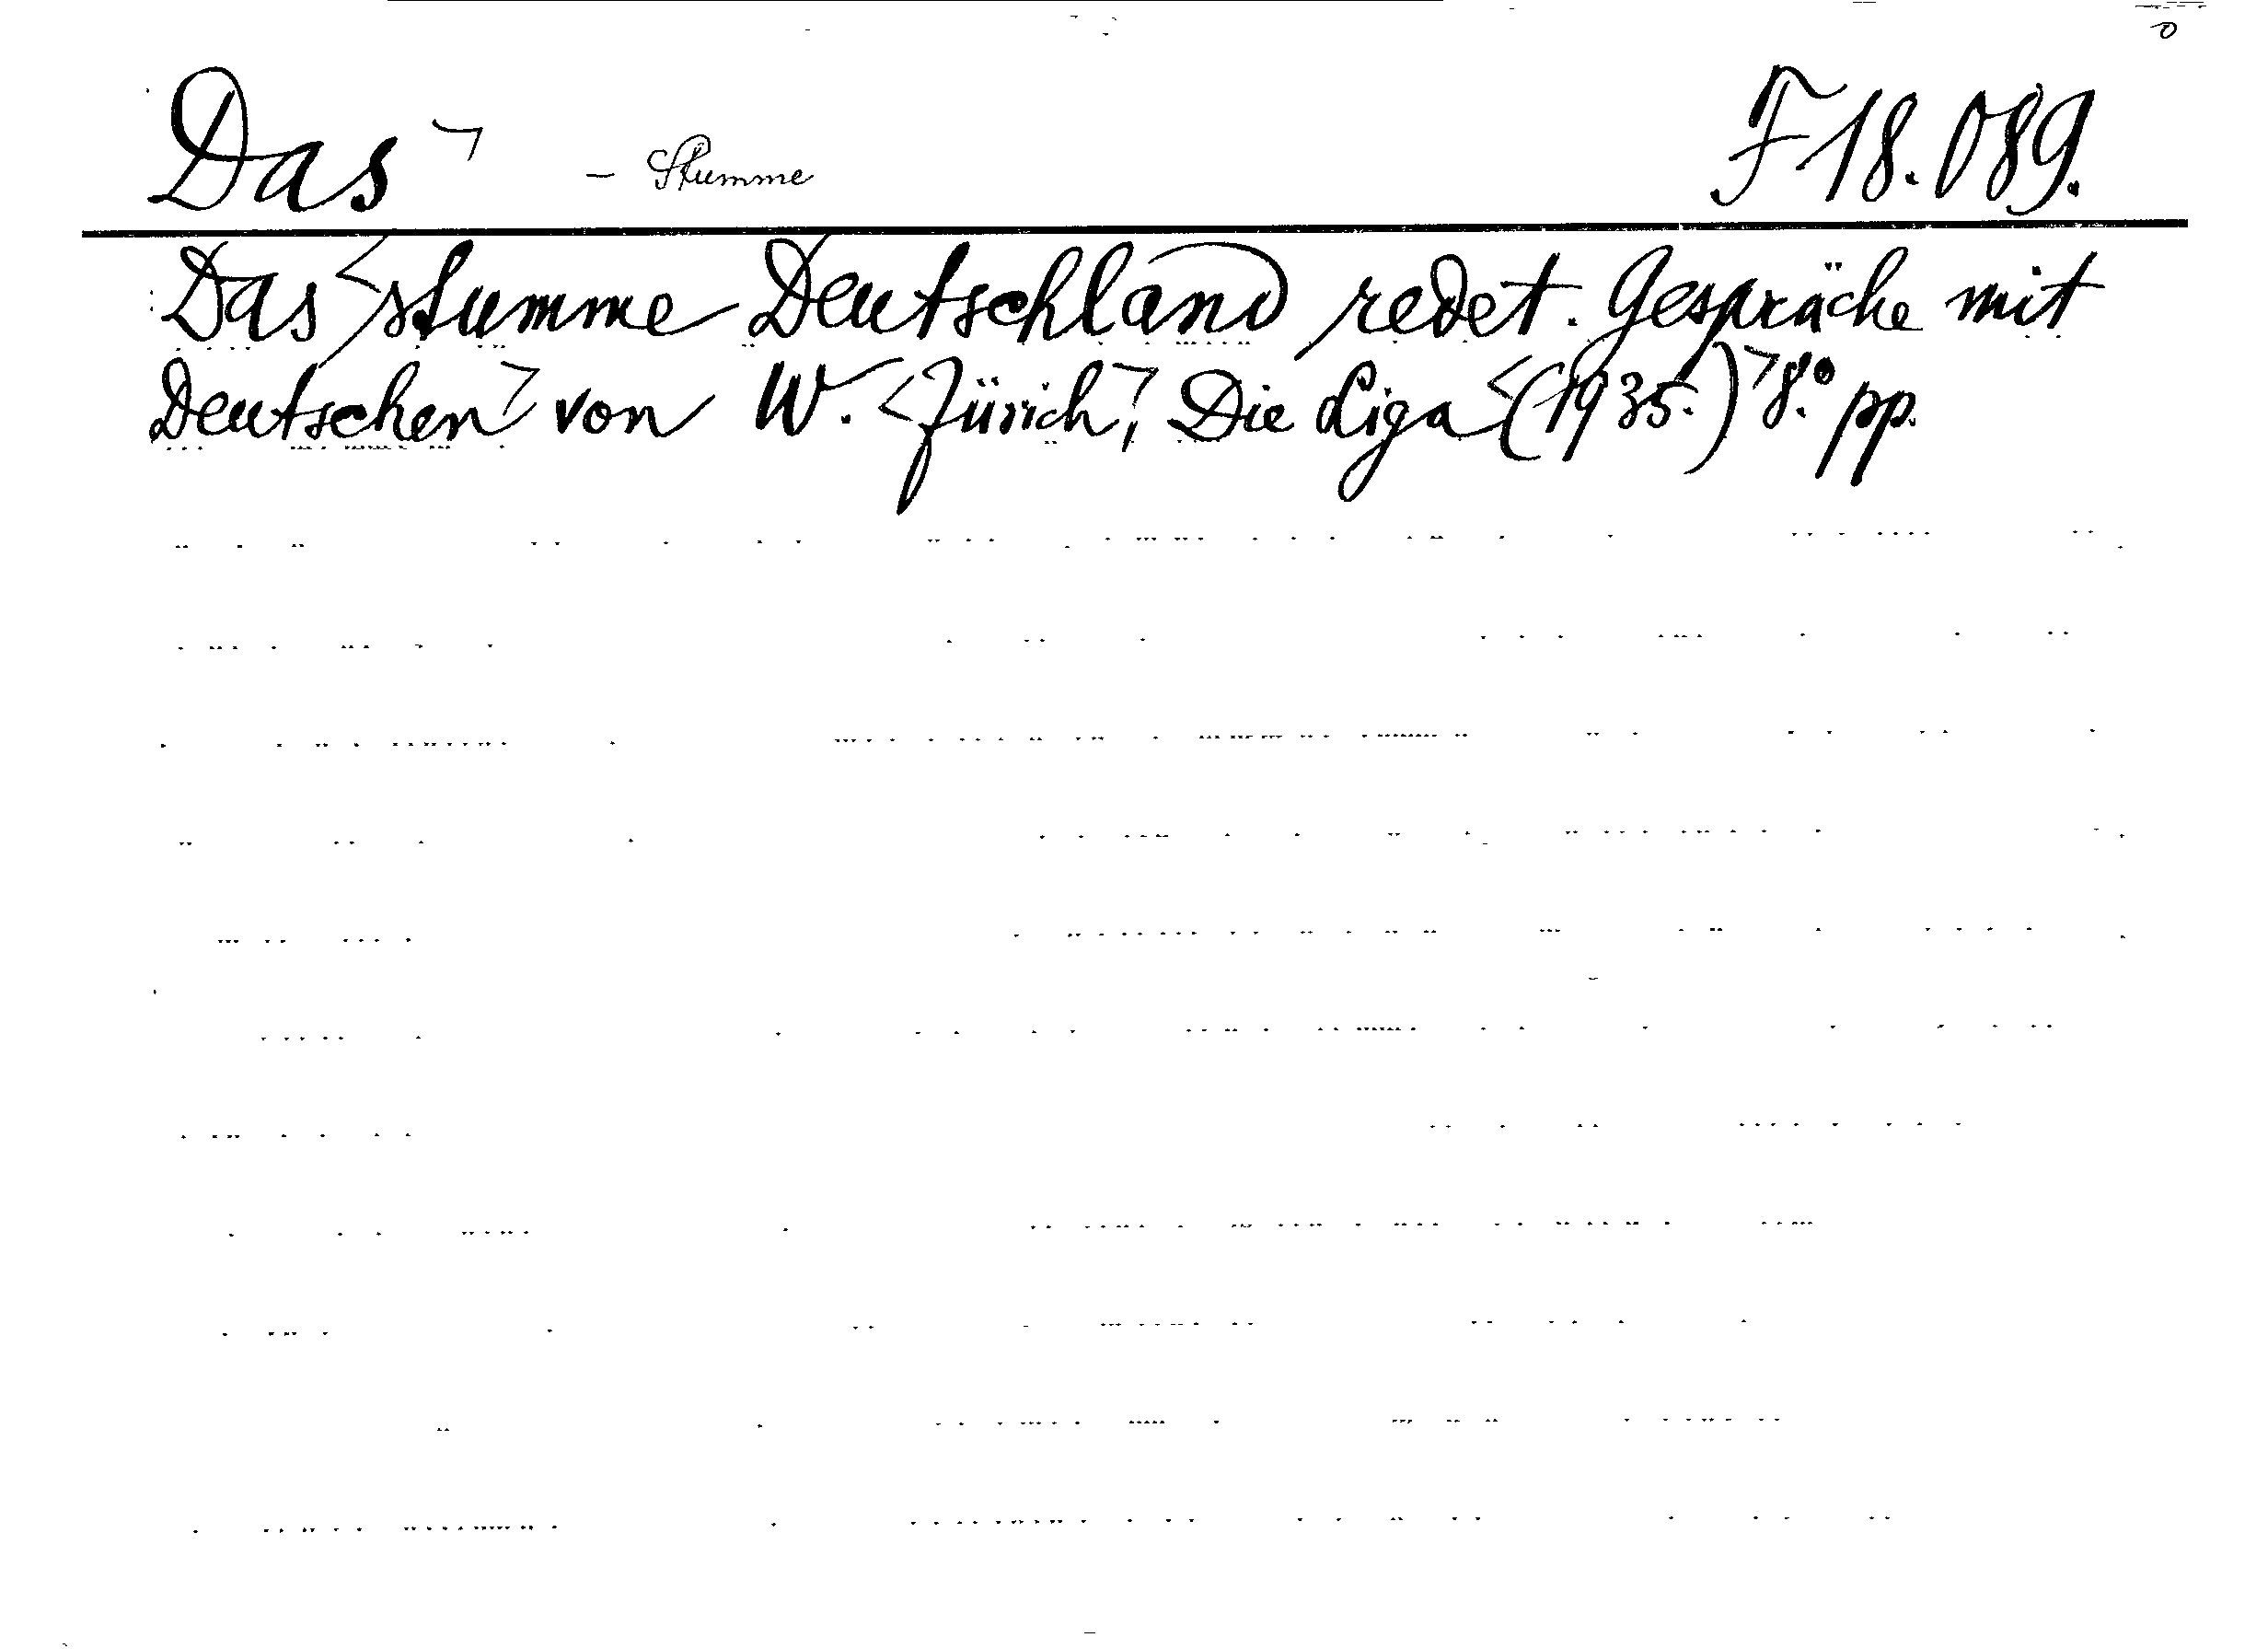 Das⌝ - Stumme F 18.089.
Das <stumme Deutschland redet. Gespräche mit
Deutschen⌝ von W. <Zürich,⌝ Die Liga <(1935.)⌝ 8.° pp.